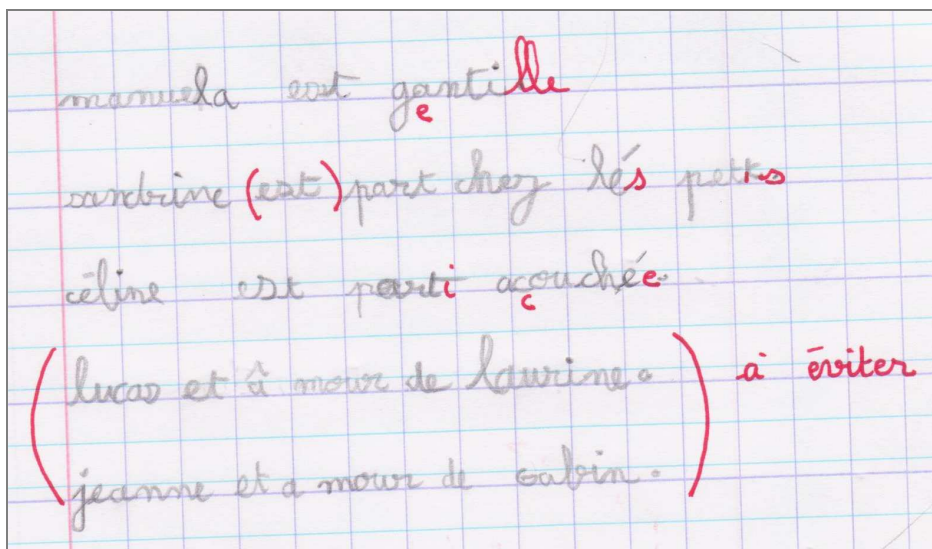 manuela est gantille
e
sandrine (est) part chez lés petits
céline est parti açouchée.
c
(lucas et à mour de laurine.
jeanne et a mour de sabin.) à éviter